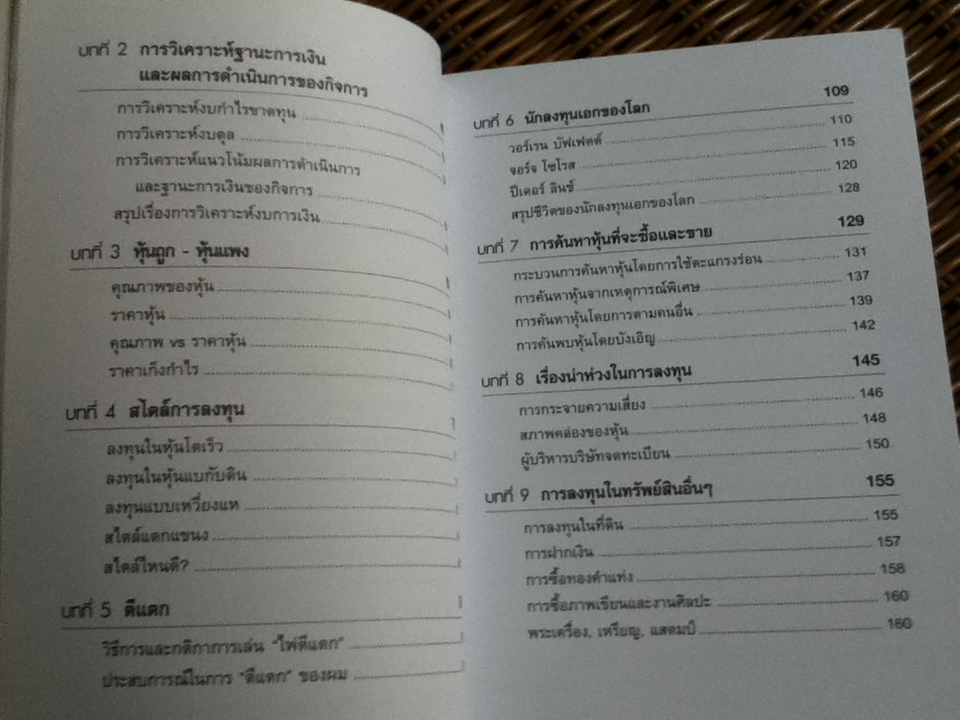 บทที่ 2 การวิเคราะห์ฐานะการเงิน
และผลการดำเนินการของกิจการ
การวิเคราะห์งบกำไรขาดทุน
การวิเคราะห์งบดุล
การวิเคราะห์แนวโน้มผลการดำเนินการ
และฐานะการเงินของกิจการ
สรุปเรื่องการวิเคราะห์งบการเงิน
บทที่ 3 หุ้นถูก - หุ้นแพง
คุณภาพของหุ้น
ราคาหุ้น
คุณภาพ vs ราคาหุ้น
ราคาเก็งกำไร
บทที่ 4 สไตล์การลงทุน
ลงทุนในหุ้นโตเร็ว
ลงทุนในหุ้นแบกับดิน
ลงทุนแบบเหวี่ยงแห
สไตล์แตกแขนง
สไตล์ไหนดี?
บทที่ 5 ดีแตก
วิธีการและกติกาการเล่น "ไพ่ดีแตก"
ประสบการณ์ในการ "ดีแตก" ของผม
บทที่ 6 นักลงทุนเอกของโลก 109
วอร์เรน บัฟเฟตต์ 110
จอร์จ โซโรส 115
ปีเตอร์ ลินช์ 120
สรุปชีวิตของนักลงทุนเอกของโลก 128
บทที่ 7 การค้นหาหุ้นที่จะซื้อและขาย 129
กระบวนการค้นหาหุ้นโดยการใช้ตะแกรงร่อน 131
การค้นหาหุ้นจากเหตุการณ์พิเศษ 137
การค้นหาหุ้นโดยการตามคนอื่น 139
การค้นพบหุ้นโดยบังเอิญ 142
บทที่ 8 เรื่องน่าห่วงในการลงทุน 145
การกระจายความเสี่ยง 146
สภาพคล่องของหุ้น 148
ผู้บริหารบริษัทจดทะเบียน 150
บทที่ 9 การลงทุนในทรัพย์สินอื่นๆ 155
การลงทุนในที่ดิน 155
การฝากเงิน 157
การซื้อทองคำแท่ง 158
การซื้อภาพเขียนและงานศิลปะ 160
พระเครื่อง, เหรียญ, แสตมป์ 160